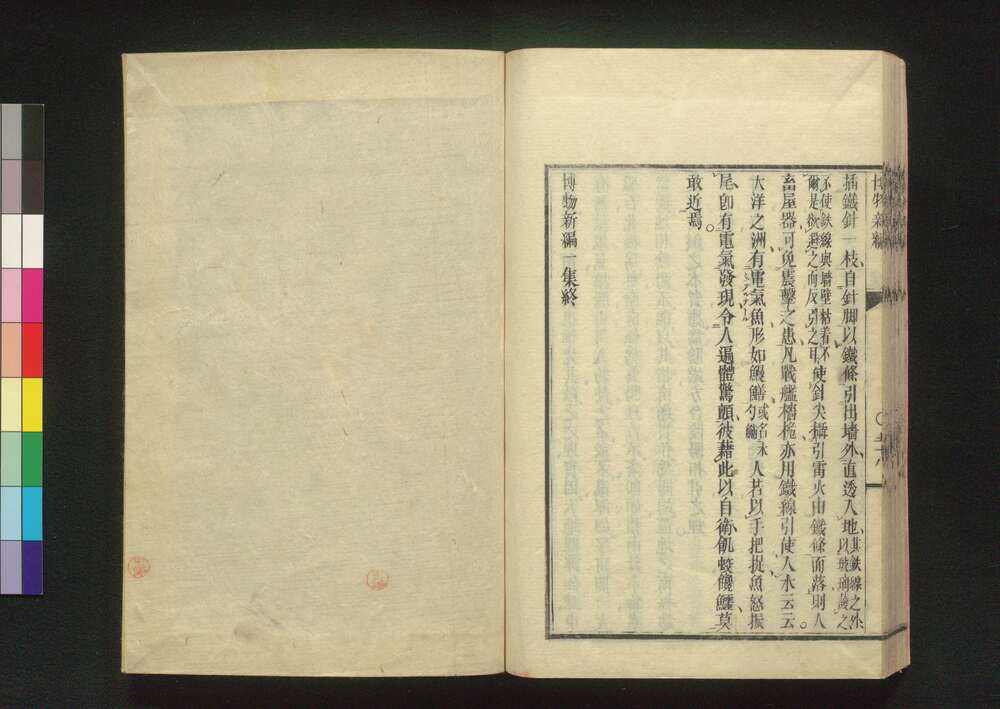 博物新編
插鐵針一枝自針脚以鐵條引出墻外直透入地其鉄線之外以玻璃護之
不使鉄線與墻壁粘着不使針尖攝引雷火由鐵條而落則人
爾是欲避之而反引之耳
畜屋器可免震擊之患凡戰艦檣桅亦用鐵線引使入水云云
大洋之洲有電氣魚形如鰻鱔或名氷勺鋤人若以手把捉魚怒振
尾卽有電氣發現令人遍體驚顫彼藉此以自衛飢蛟饑鱷莫
敢近焉
博物新編一集終